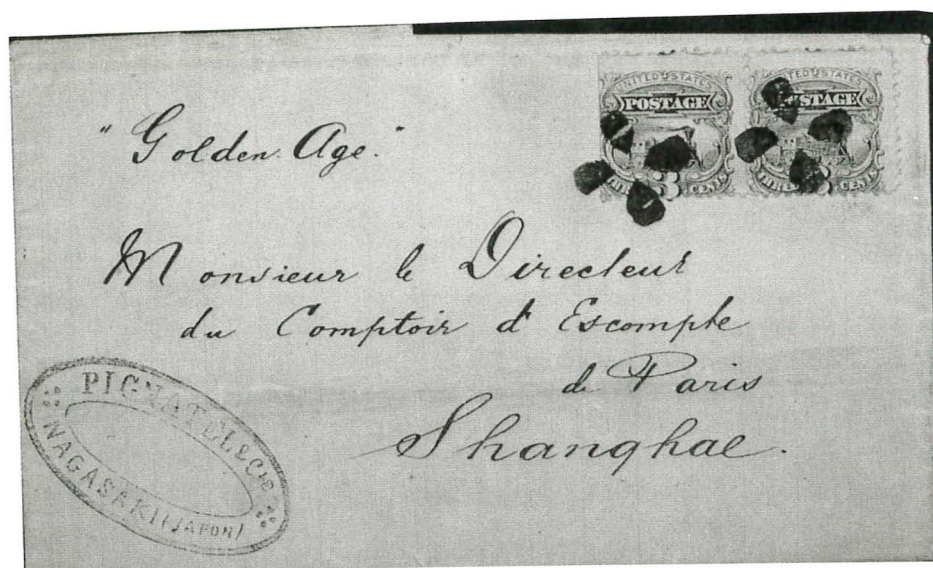 UNITED STATES
POSTAGE
THREE CENTS
UNITED STATES
POSTAGE
THREE CENTS
"Golden Age."
Monsieur le Directeur
du Comptoir d'Escompte
de Paris
Shanghae.
PIGNATEL & Cie
NAGASAKI (JAPON)